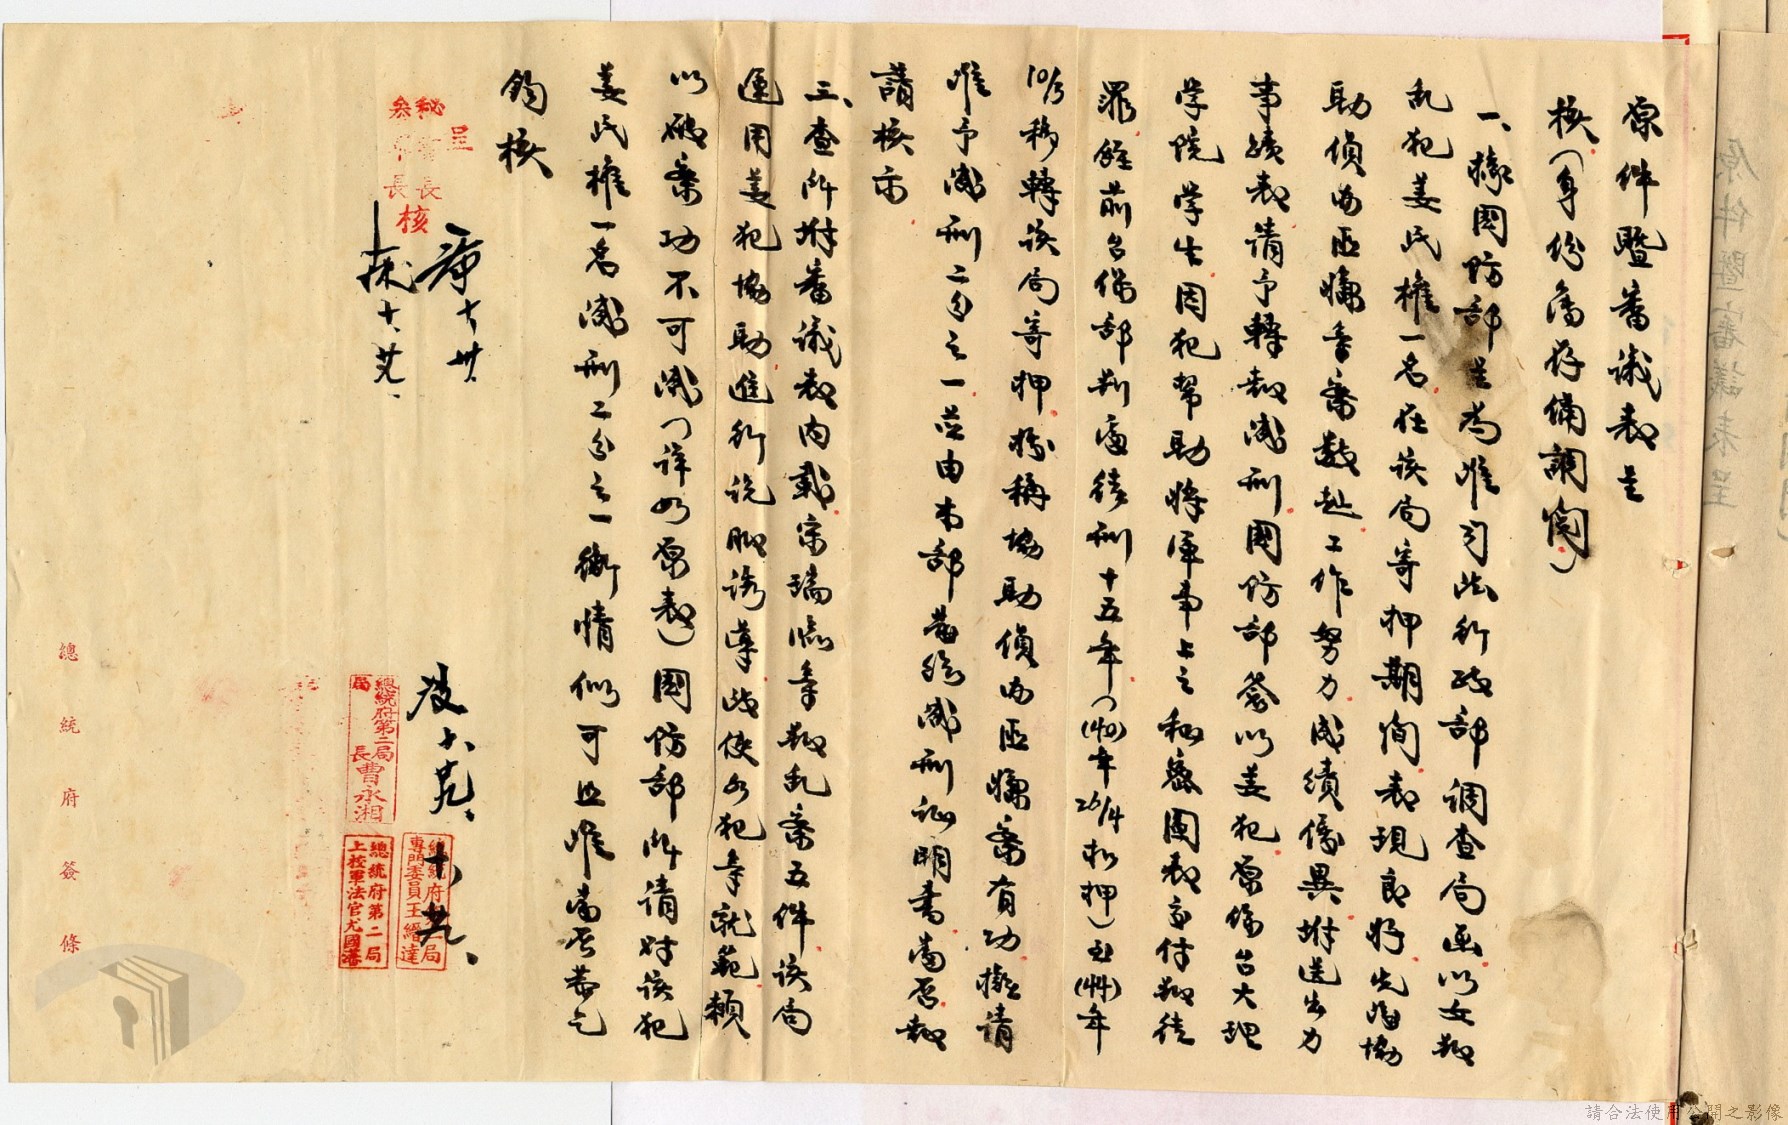 原件暨審議表呈
核（身份簿存備調閱）
一、據國防部呈為准司法行政部調查局函以女叛
乱犯姜民權一名在該局寄押期間表現良好先後協
助偵破匪嫌重案數起工作努力成績優異拼送出力
事蹟表請予轉報減刑國防部簽以姜犯原係台大理
学院学生因犯幫助將軍事上之秘密圖表交付叛徒
罪經前台保部判處徒刑十五年（(40)年26/4扣押）至(44)年
10/3移轉該局寄押據稱協助偵破匪嫌案有功擬請
准予減刑二分之一並由本部發給減刑證明書當否報
請核示
二、查所拼審議表內載宋瑞臨等叛乱案五件該局
運用姜犯協助進行說服誘導政使各犯等就範賴
以破案功不可滅（詳如原表）國防部所請對該犯
姜民權一名減刑二分之一衡情似可照准當否恭乞
鈞核
呈
秘書長
參軍長
核
十、卅
十、廿九
總統府第二局局長曹永湘
十、廿九
總統府第二局專門委員王縉達
總統府第二局上校軍法官尤國藩
總統府簽條
請合法使用公開之影像
原件暨審議表呈